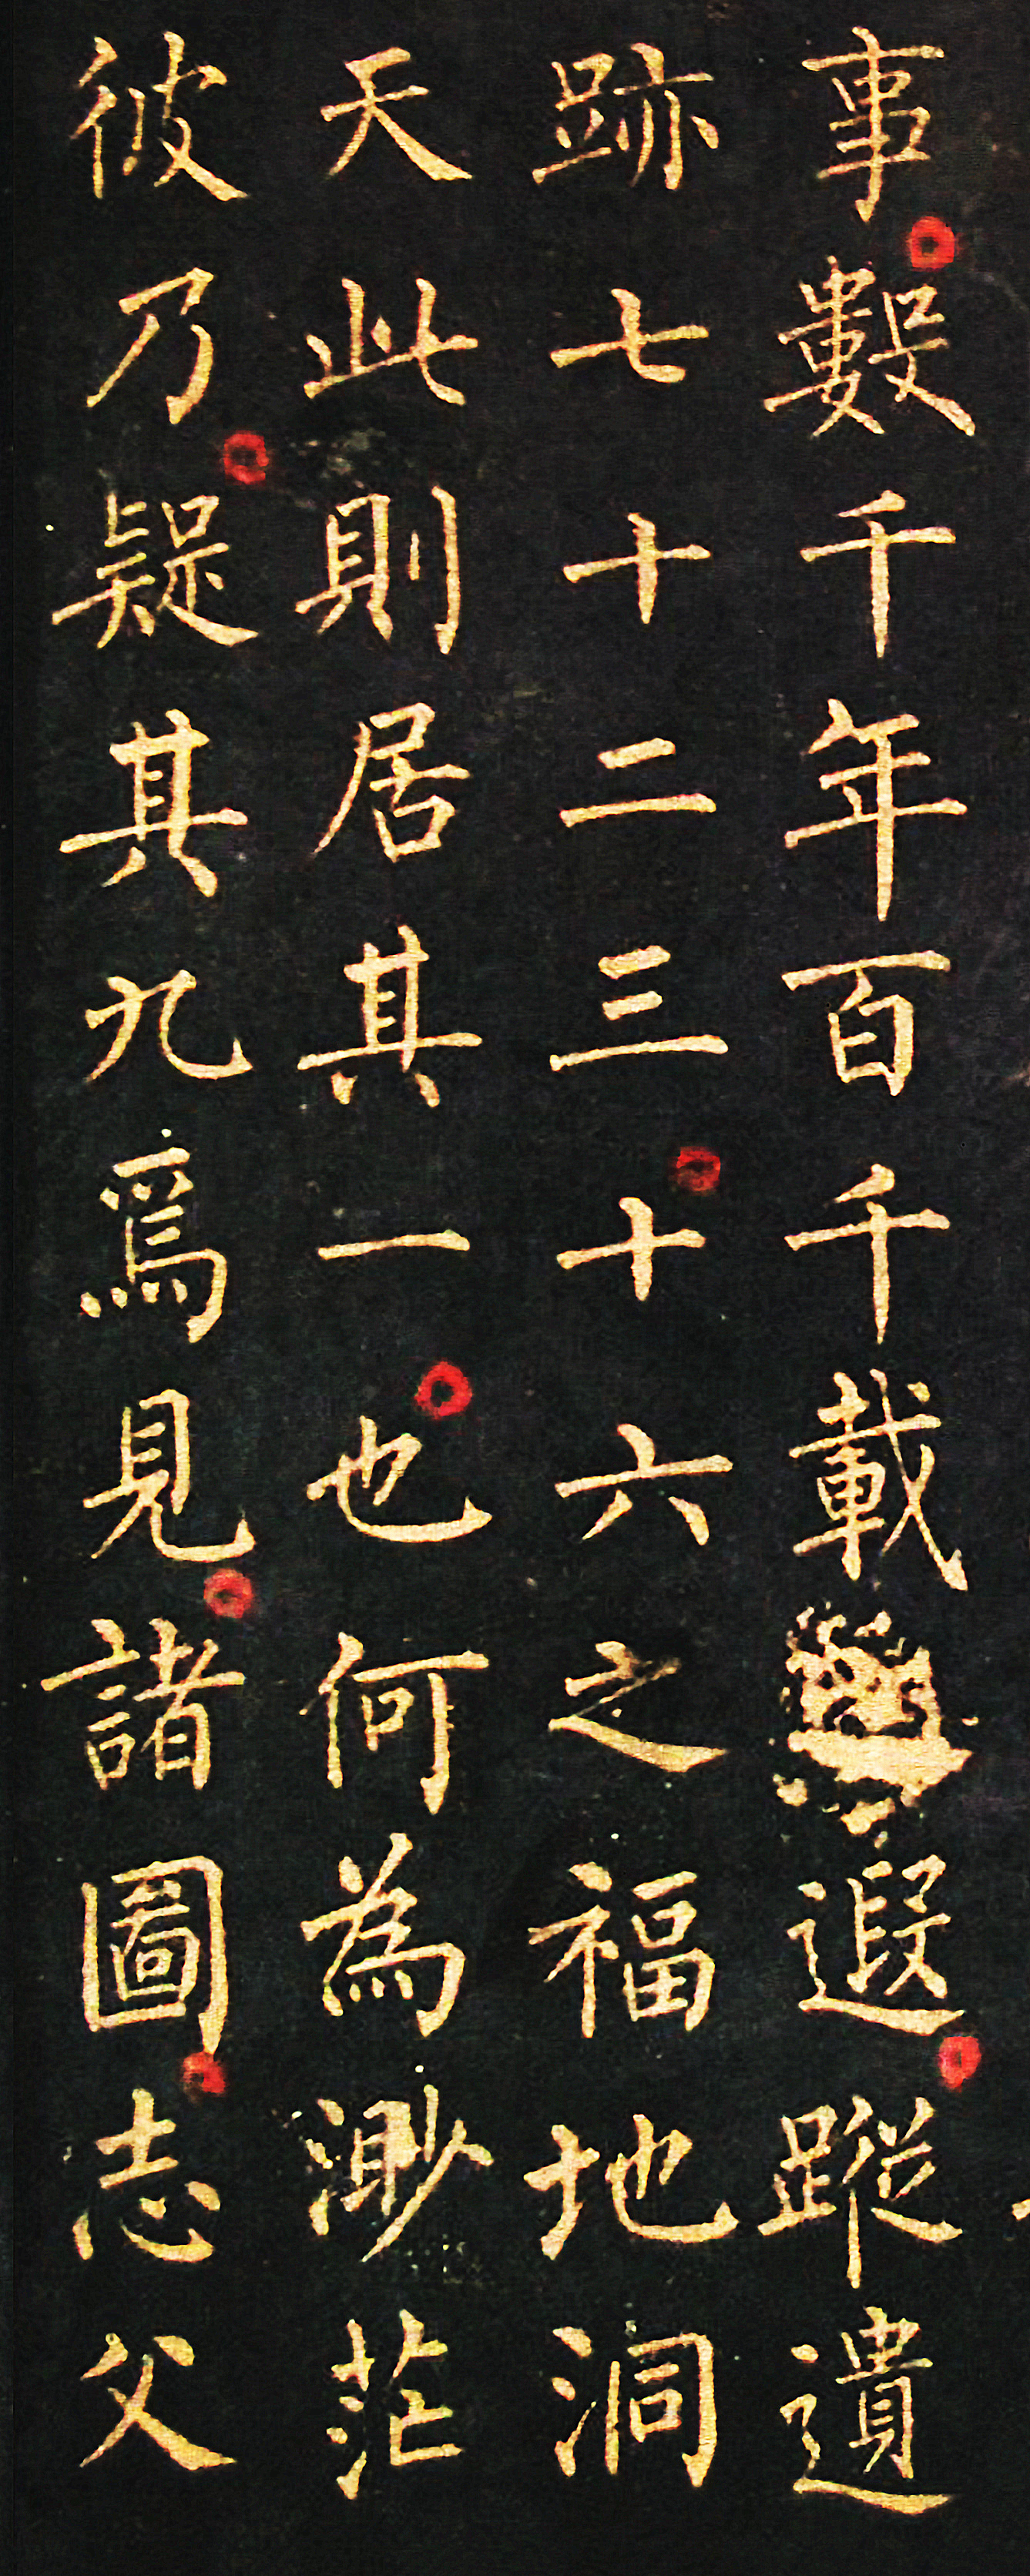 事數千年百千載遐蹤遺
跡七十二三十六之福地洞
天此則居其一也何為渺茫
彼乃疑其九爲見諸圖志父